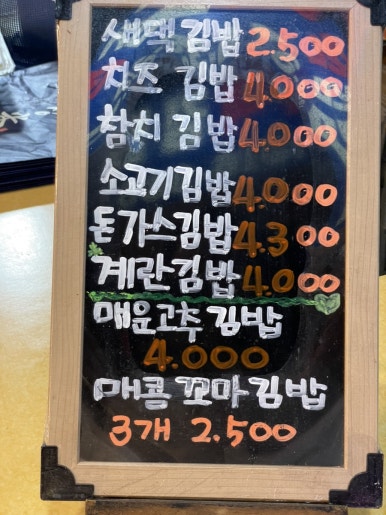 새댁김밥 2.500
치즈 김밥 4.000
참치 김밥 4.000
소고기김밥 4.000
돈가스김밥 4.300
계란김밥 4.000
매운고추김밥
4.000
매콤 꼬마김밥
3개 2.500